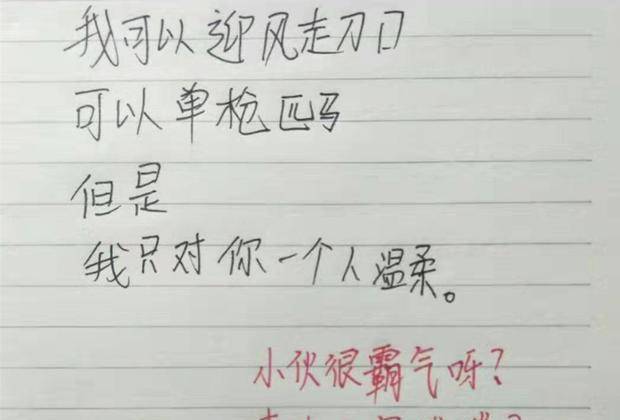 我可以迎风走刀口
可以单枪匹马
但是
我只对你一个人温柔。
小伙很霸气呀？